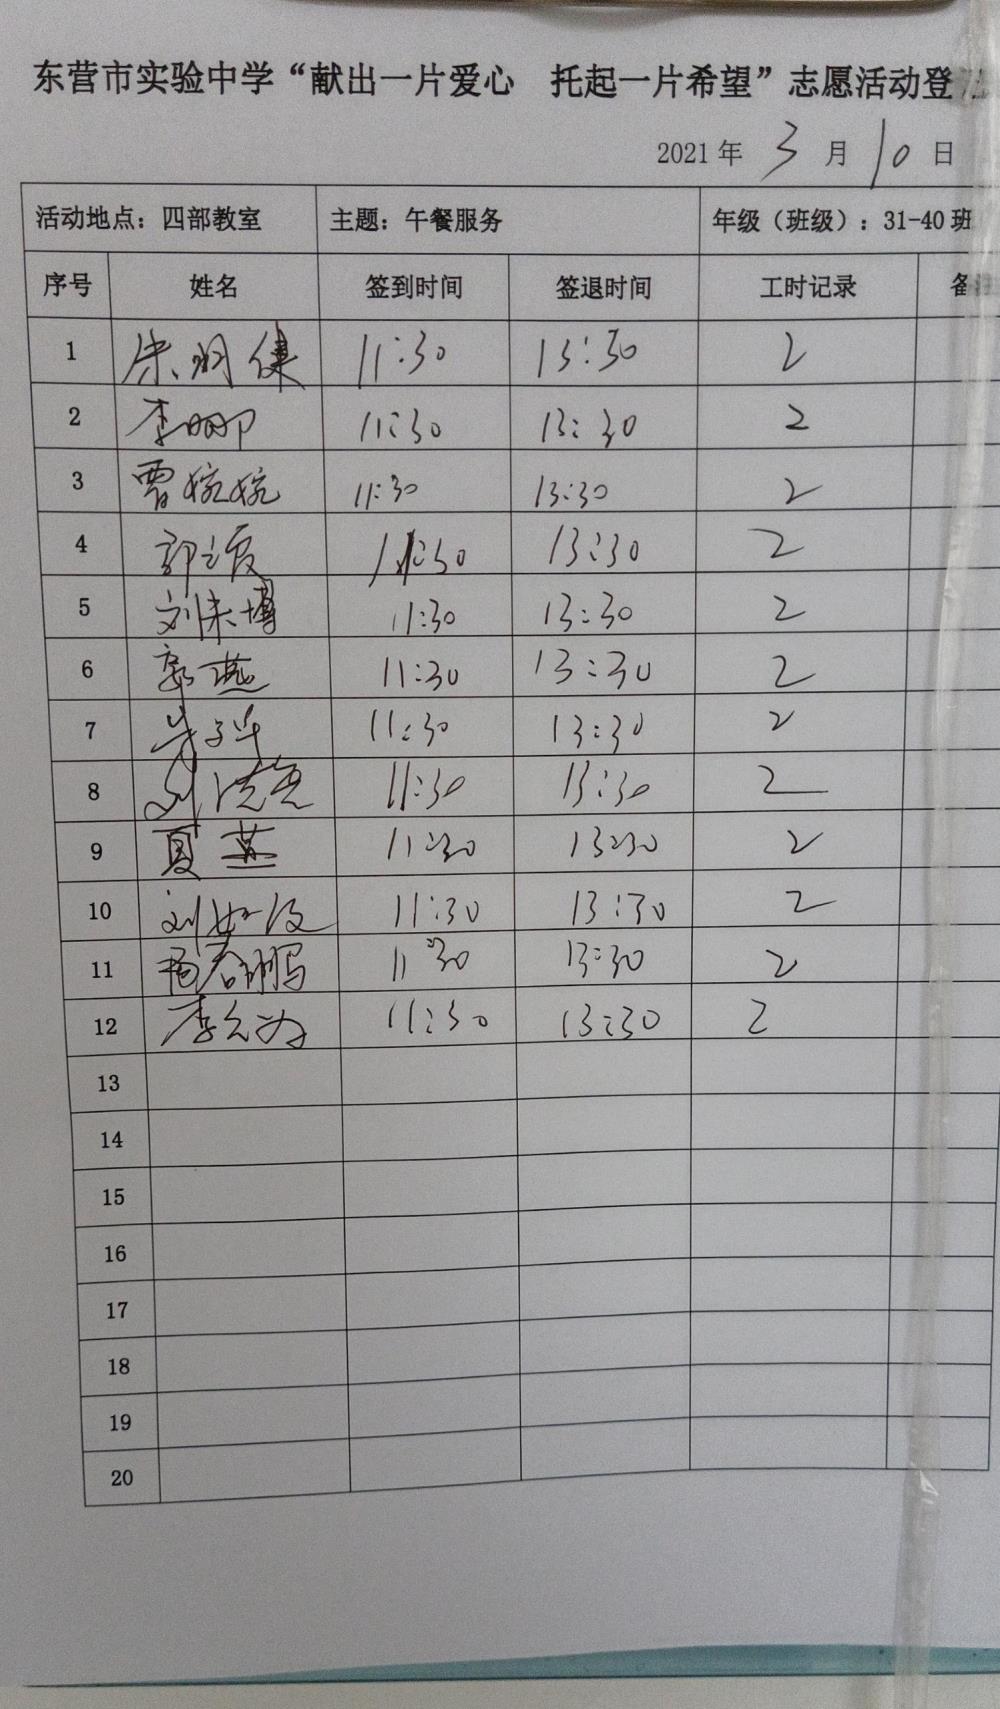 东营市实验中学“献出一片爱心 托起一片希望”志愿活动登
2021 年 3 月 10 日
活动地点：四部教室 主题：午餐服务 年级（班级）：31-40 班
序号 姓名 签到时间 签退时间 工时记录 备注
1 朱明健 11:30 13:30 2
2 李娜 11:30 13:30 2
3 曹婉婉 11:30 13:30 2
4 郭 霞 11:30 13:30 2
5 刘 博 11:30 13:30 2
6 郭燕 11:30 13:30 2
7 11:30 13:30 2
8 刘 11:30 13:30 2
9 夏燕 11:30 13:30 2
10 刘如 11:30 13:30 2
11 杨春鹏 11:30 13:30 2
12 李 11:30 13:30 2
13
14
15
16
17
18
19
20